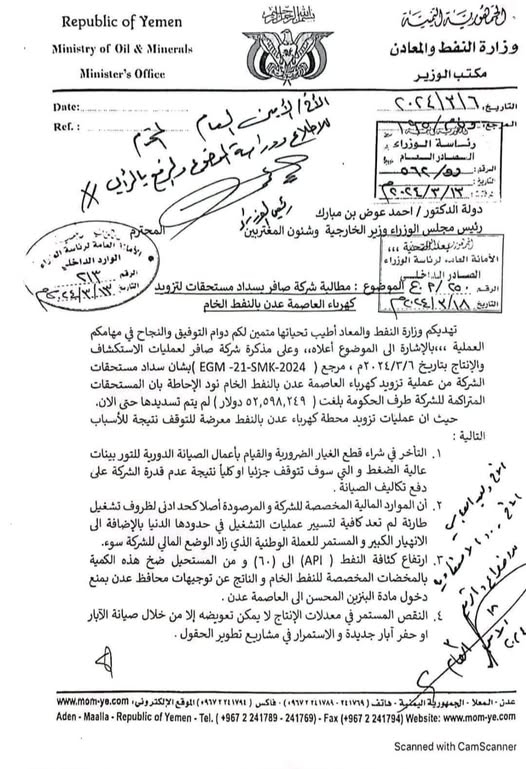 Republic of Yemen
Ministry of Oil & Minerals
Minister's Office
الجمهورية اليمنية
وزارة النفط والمعادن
مكتب الوزير
Date:
Ref. :
التاريخ: ٢٠٢٤/٣/٦
المرجع:
الأخ/ الأمين العام المحترم
للاطلاع ودراسة الموضوع والرفع بالرأي
رئيس الوزراء
رئاسة الوزراء
الصادر العام
الرقم:
التاريخ: ٢٠٢٤/٣/١٣م
دولة الدكتور / احمد عوض بن مبارك
رئيس مجلس الوزراء وزير الخارجية وشئون المغتربين المحترم
الأمانة العامة لرئاسة الوزراء
الوارد الداخلي
الرقم ٢١٣
التاريخ ٢٠٢٤/٣/١٣م
بعد التحية ،،،
الأمانة العامة لرئاسة الوزراء
الصادر الداخلي
الرقم
التاريخ ٢٠٢٤/٣/١٨م
الموضوع : مطالبة شركة صافر بسداد مستحقات لتزويد
كهرباء العاصمة عدن بالنفط الخام
تهديكم وزارة النفط والمعاد أطيب تحياتها متمين لكم دوام التوفيق والنجاح في مهامكم
العملية ،،،بالإشارة الى الموضوع أعلاه،، وعلى مذكرة شركة صافر لعمليات الاستكشاف
والإنتاج بتاريخ ٢٠٢٤/٣/٦م ، مرجع ( EGM -21-SMK-2024) بشان سداد مستحقات
الشركة من عملية تزويد كهرباء العاصمة عدن بالنفط الخام نود الإحاطة بان المستحقات
المتراكمة للشركة طرف الحكومة بلغت ( ٥٢,٥٩٨,٢٤٩ دولار ) لم يتم تسديدها حتى الان.
حيث ان عمليات تزويد محطة كهرباء عدن بالنفط معرضة للتوقف نتيجة للأسباب
التالية :
١. التأخر في شراء قطع الغيار الضرورية والقيام بأعمال الصيانة الدورية للتور بينات
عالية الضغط و التي سوف تتوقف جزئيا او كلياً نتيجة عدم قدرة الشركة على
دفع تكاليف الصيانة .
٢. أن الموارد المالية المخصصة للشركة و المرصودة أصلا كحد ادنى لظروف تشغيل
طارئة لم تعد كافية لتسيير عمليات التشغيل في حدودها الدنيا بالإضافة الى
الانهيار الكبير و المستمر للعملة الوطنية الذي زاد الوضع المالي للشركة سوء.
٣. ارتفاع كثافة النفط ( API) الى (٦٠) و من المستحيل ضخ هذه الكمية
بالمخضات المخصصة للنفط الخام و الناتج عن توجيهات محافظ عدن بمنع
دخول مادة البنزين المحسن الى العاصمة عدن.
٤. النقص المستمر في معدلات الإنتاج لا يمكن تعويضه إلا من خلال صيانة الآبار
او حفر آبار جديدة و الاستمرار في مشاريع تطوير الحقول .
عدن - المعلا - الجمهورية اليمنية - هاتف : (٢٤١٧٦٩ - ٢٤١٧٨٩ ٠٩٦٧٢) - فاكس (٢٤١٧٩٤ ٠٩٦٧٢) الموقع الإلكتروني: www.mom-ye.com
Aden - Maalla - Republic of Yemen - Tel. ( +967 2 241789 - 241769) - Fax (+967 2 241794) Website: www.mom-ye.com
Scanned with CamScanner